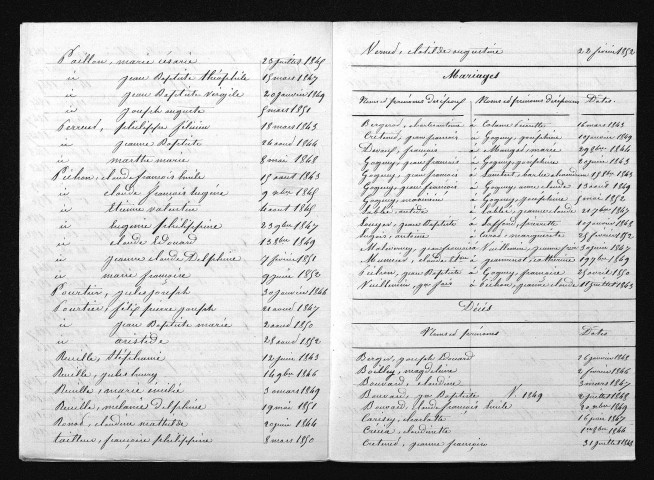 Paillon, marie césarie 23 juillet 1845
id jean Baptiste théophile 15 mars 1847
id jean Baptiste Vergile 20 janvier 1849
id joseph auguste 5 mars 1851
Perreut, philippe 18 mars 1843
id jeanne Baptiste 26 aout 1844
id marthe marie 8 mai 1848
Pichon, claude françois Emile 15 aout 1843
id claude françois Eugène 9 xbre 1845
id étienne valentin 4 aout 1845
id Eugenie philippine 23 9bre 1847
id claude Edouard 13 8bre 1849
id jeanne claude Delphine 7 février 1851
id marie françoise 9 juin 1852
Pourtier, jules joseph 30 janvier 1846
Pourtier, félix pierre joseph 21 aout 1847
id jean Baptiste marie 2 aout 1850
id aristide 28 aout 1852
Reuille, Stéphanie 12 juin 1843
Reuille, jules henry 14 9bre 1846
Reuille, marie émilie 3 mars 1849
Reuille, mélanie delphine 19 mai 1851
Renod, claudine mathilde 20 juin 1844
taillier, françoise philippine 8 mars 1850
Vernet, clotilde augustine 22 février 1852
Mariages
Noms et prénoms des époux Noms et prénoms des épouses Dates
Bergerod, à Colomb 16 mars 1843
Cretenet, jean francois à Goguey, josephine 10 janvier 1849
françois à marie 29 8bre 1844
Goguey, jean francois à Goguey, josephine 20 juin 1843
Goguey, jean francois à 15 9bre 1843
Goguey, jean francois à Goguey, anne claude 13 aout 1849
Goguey, à Goguey, josephine 5 mai 1852
à jeanne claude 21 7bre 1847
jean Baptiste à 10 janvier 1848
antoine à marguerite 25 février 1852
jean francois à Vuillemin, 30 juin 1847
à jeannenot, catherine 19 9bre 1849
Pichon, jean Baptiste à Goguey, françoise 25 avril 1850
Vuillemin, à Pichon, jeanne claude 11 juillet 1843
Décès
Noms et prénoms Dates
Berger, joseph Edouard 16 janvier 1848
Boilley, magdeleine 2 février 1846
Bouvard, claudine 3 mars 1847
Bouvard, Baptiste 1849 2 juillet 1848
Bouvard, claude françois Emile 20 xbre 1849
charlotte 16 juin 1847
claudinette 1er 8bre 1844
Cretenet, jeanne françoise 31 juillet 1848